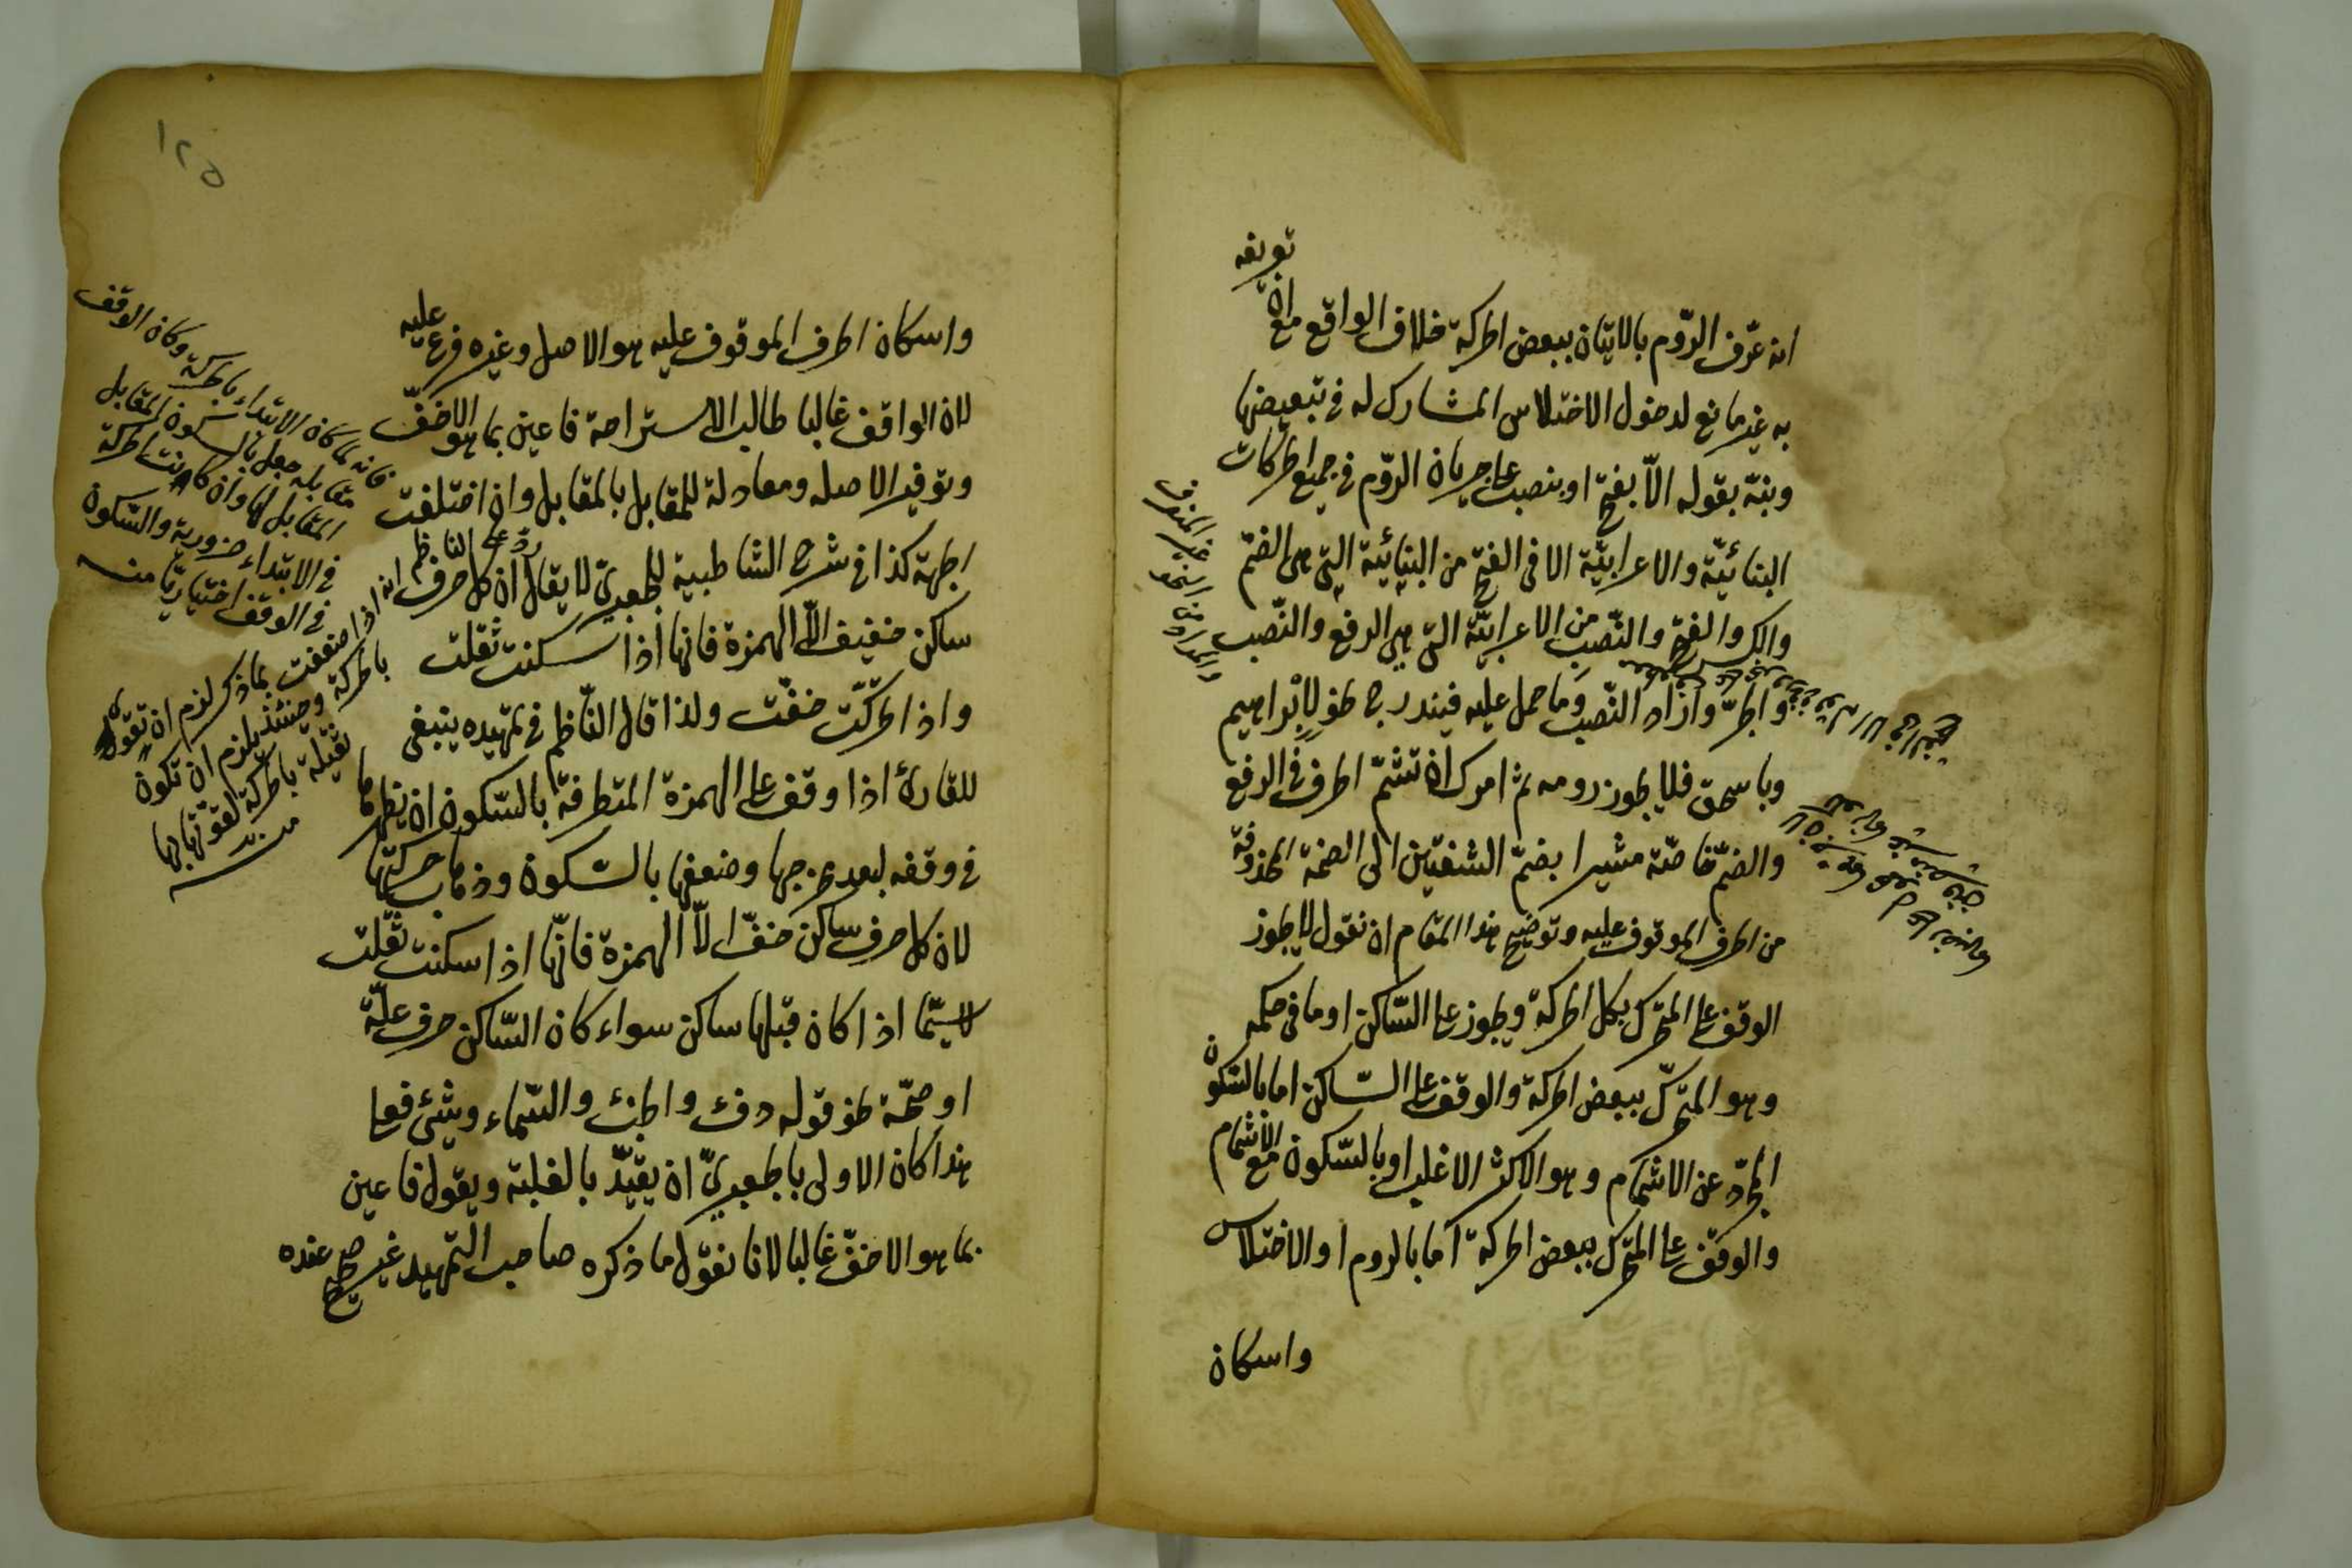 انه عرّف الرّوم بالاتيان ببعض الحركة خلاف الواقع مع انّ تعريفه
به غير مانع لدخول الاختلاس المشارك له في تبعيضها
ونبّه بقوله الّا بفتح او بنصب على جريان الرّوم في جميع الحركات
البنائيّة والاعرابيّة الا في الفتح من البنائيّة التي هى الضمّ
والكسر والفتح والنّصب من الاعرابيّة التي هى الرفع والنّصب
والجرّ واراد النّصب وما حمل عليه فيندرج نحو لابراهيم
وباسحق فلا يجوز رومه ثم امرك ان تشمّ الحرف في الرفع
والضمّ خاصّة مشيرا بضمّ الشفتين الى الضمّة المحذوفة
من الحرف الموقوف عليه وتوضيح هذا المقام ان نقول لا يجوز
الوقف على المتحرك بكل الحركة ويجوز على السّاكن او ما في حكمه
وهو المتحرّك ببعض الحركة والوقف على السّاكن اما بالسّكون
المجرّد عن الاشمام وهو الاكثر الاغلب او بالسّكون مع الاشمام
والوقف على المتحرّك ببعض الحركة اما بالروم او الاختلاس
واسكان
١٢٥
واسكان الحرف الموقوف عليه هو الاصل وغيره فرع عليه
لان الواقف غالبا طالب الاستراحة فاعين بما هو الاخفّ
وتوفير الاصله ومعادلة للمقابل بالمقابل وان اختلفت
الجهة كذا في شرح الشاطبية للجعبريّ لا يقال ان كل حرف
ساكن خفيف الّا الهمزة فانها اذا سكنت ثقلت
واذا حركت خفّت ولذا قال النّاظم في تمهيده ينبغى
للقارئ اذا وقف على الهمزة المتطرفة بالسّكون ان يظهرها
في وقفه لبعد مخرجها وضعفها بالسّكون وذهاب حركتها
لان كل حرف ساكن خفّ الّا الهمزة فانّها اذا سكنت ثقلت
لا سيّما اذا كان قبلها ساكن سواء كان السّاكن حرف علّة
او صحّة نحو قوله دفء والخبء والسّماء وشئ فعلى
هذا كان الاولى بالجعبريّ ان يقيّد بالغلبة ويقول فاعين
بما هو الاخفّ غالبا لانا نقول ما ذكره صاحب التّمهيد غير صحيح عنده
فانه لما كان الابتداء بالحركة وكان الوقف
مقابله جعل بالسكون المقابل
المقابل لها وان كانت الحركة
في الابتداء ضرورية والسّكون
في الوقف اختياريّا منه
ردّ على الناظم
انه اذا ضعفت بما ذكر لزم ان تقوى
بالحركة وحينئذ يلزم ان تكون
ثقيلة بالحركة لقوّتها بها